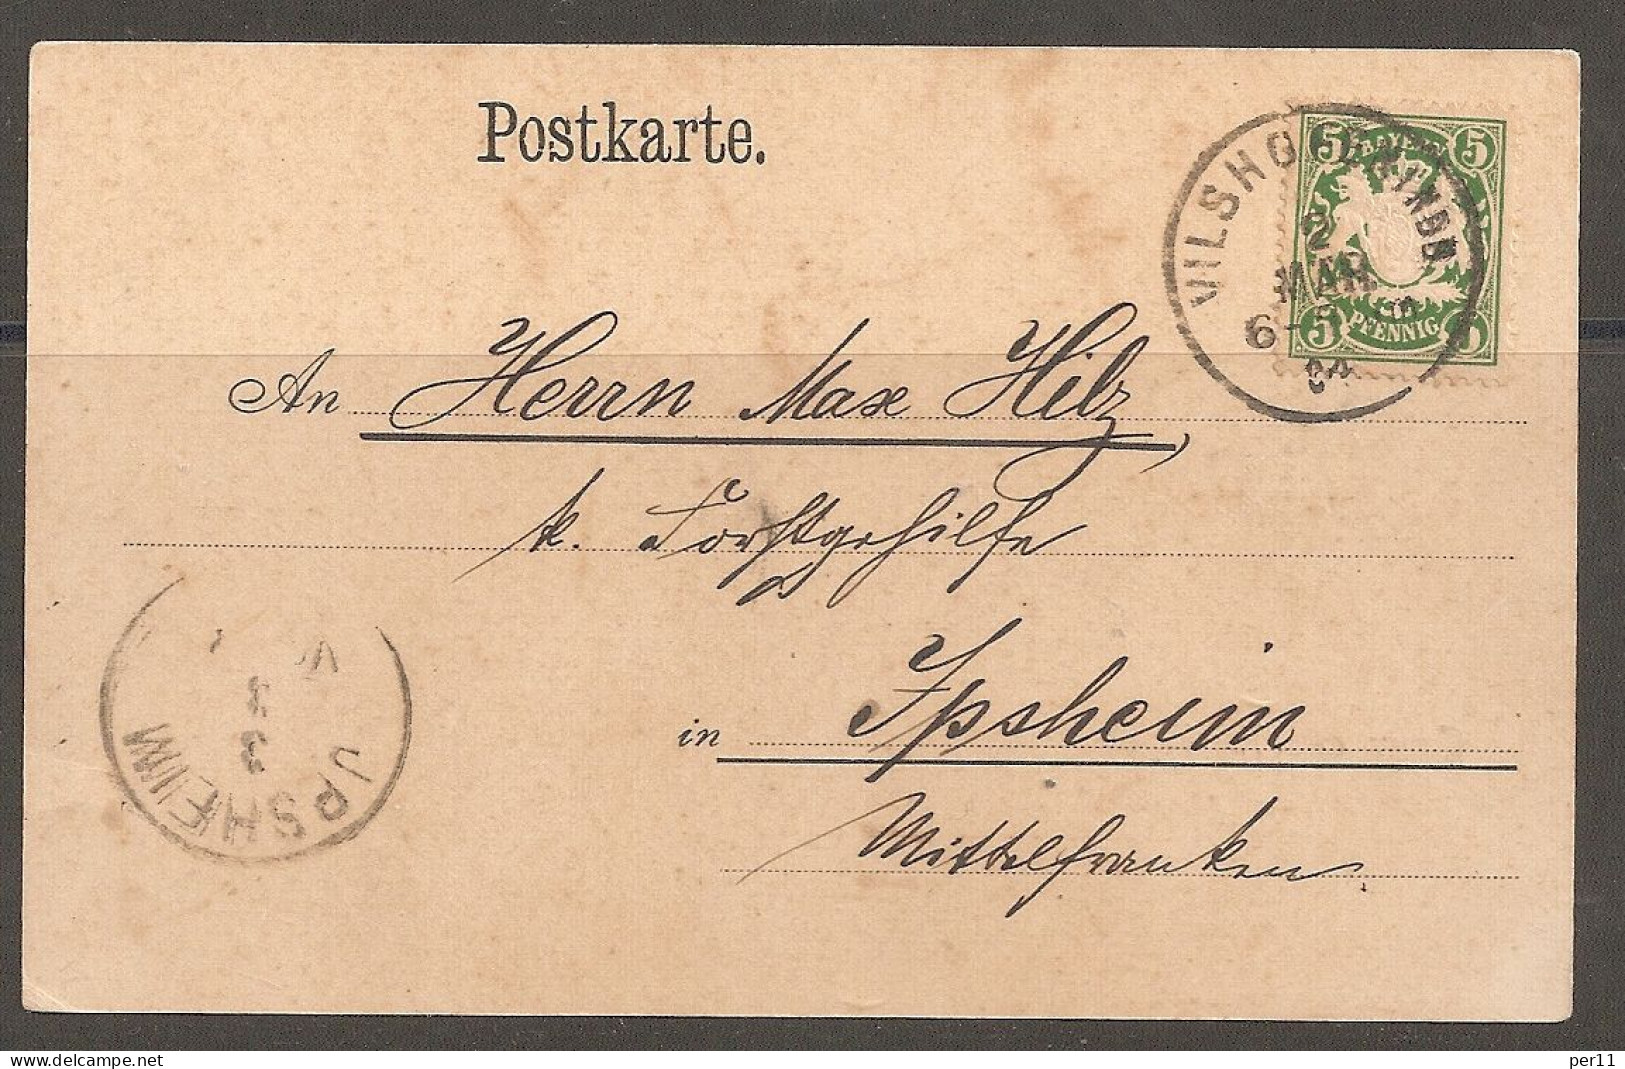 Postkarte.
5 BAYERN 5
5 PFENNIG 5
VILSHOFEN
2
MAR
6-
An Herrn Max Hilz,
k. Forstgehilfe
in Ipsheim
Mittelfranken
JPSHEIM
3
3
Delcampe.net
per11